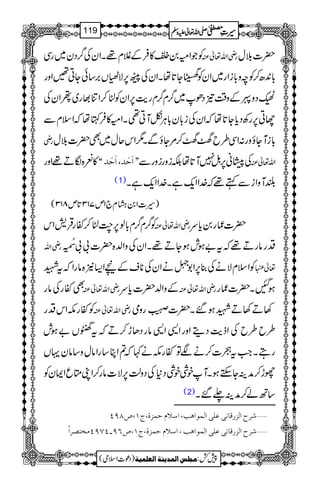 سیرتِ مصطفیٰ صلی اللہ تعالیٰ علیہ وسلم
119
حضرت بلال رضی اللہ تعالیٰ عنہ کو جو امیہ بن خلف کافر کے غلام تھے۔ ان کی گردن میں رسی
باندھ کر کوچہ و بازار میں ان کو گھسیٹا جاتا تھا۔ ان کی پیٹھ پر لاٹھیاں برسائی جاتی تھیں اور
ٹھیک دوپہر کے وقت تیز دھوپ میں گرم گرم ریت پر ان کو لٹا کر اتنا بھاری پتھر ان کی
چھاتی پر رکھ دیا جاتا تھا کہ ان کی زبان باہر نکل آتی تھی۔ امیہ کافر کہتا تھا کہ اسلام سے
باز آ جاؤ ورنہ اسی طرح گھٹ گھٹ کر مر جاؤ گے۔ مگر اس حال میں بھی حضرت بلال رضی
اللہ تعالیٰ عنہ کی پیشانی پر بل نہیں آتا تھا بلکہ زور زور سے "اَحَد، اَحَد" کا نعرہ لگاتے تھے اور
بلند آواز سے کہتے تھے کہ خدا ایک ہے۔ خدا ایک ہے۔ (1)
(سیرت ابن ہشام ج۱ ص۳۱۷ تا ص۳۱۸)
حضرت عمار بن یاسر رضی اللہ تعالیٰ عنہ کو گرم گرم بالو پر چت لٹا کر کفار قریش اس
قدر مارتے تھے کہ یہ بے ہوش ہو جاتے تھے۔ ان کی والدہ حضرت بی بی سُمیہ رضی اللہ
تعالیٰ عنہا کو اسلام لانے کی بنا پر ابوجہل نے ان کی ناف کے نیچے ایسا نیزہ مارا کہ یہ شہید
ہوگئیں۔ حضرت عمار رضی اللہ تعالیٰ عنہ کے والد حضرت یاسر رضی اللہ تعالیٰ عنہ بھی کفار کی مار
کھاتے کھاتے شہید ہو گئے۔ حضرت صہیب رومی رضی اللہ تعالیٰ عنہ کو کفار مکہ اس قدر
طرح طرح کی اذیت دیتے اور ایسی ایسی مار دھاڑ کرتے کہ یہ گھنٹوں بے ہوش
رہتے۔ جب یہ ہجرت کرنے لگے تو کفار مکہ نے کہا کہ تم اپنا سارا مال و سامان یہاں
چھوڑ کر مدینہ جا سکتے ہو۔ آپ خوشی خوشی دنیا کی دولت پر لات مار کر اپنی متاع ایمان کو
ساتھ لے کر مدینہ چلے گئے۔ (2)
......شرح الزرقانی علی المواهب، اسلام حمزة، ج۱، ص۴۹۸
......شرح الزرقانی علی المواهب ، اسلام حمزة، ج۱، ص۴۹۶،۴۹۷مختصراً
پیش کش : مجلس المدینة العلمیة (دعوت اسلامی)